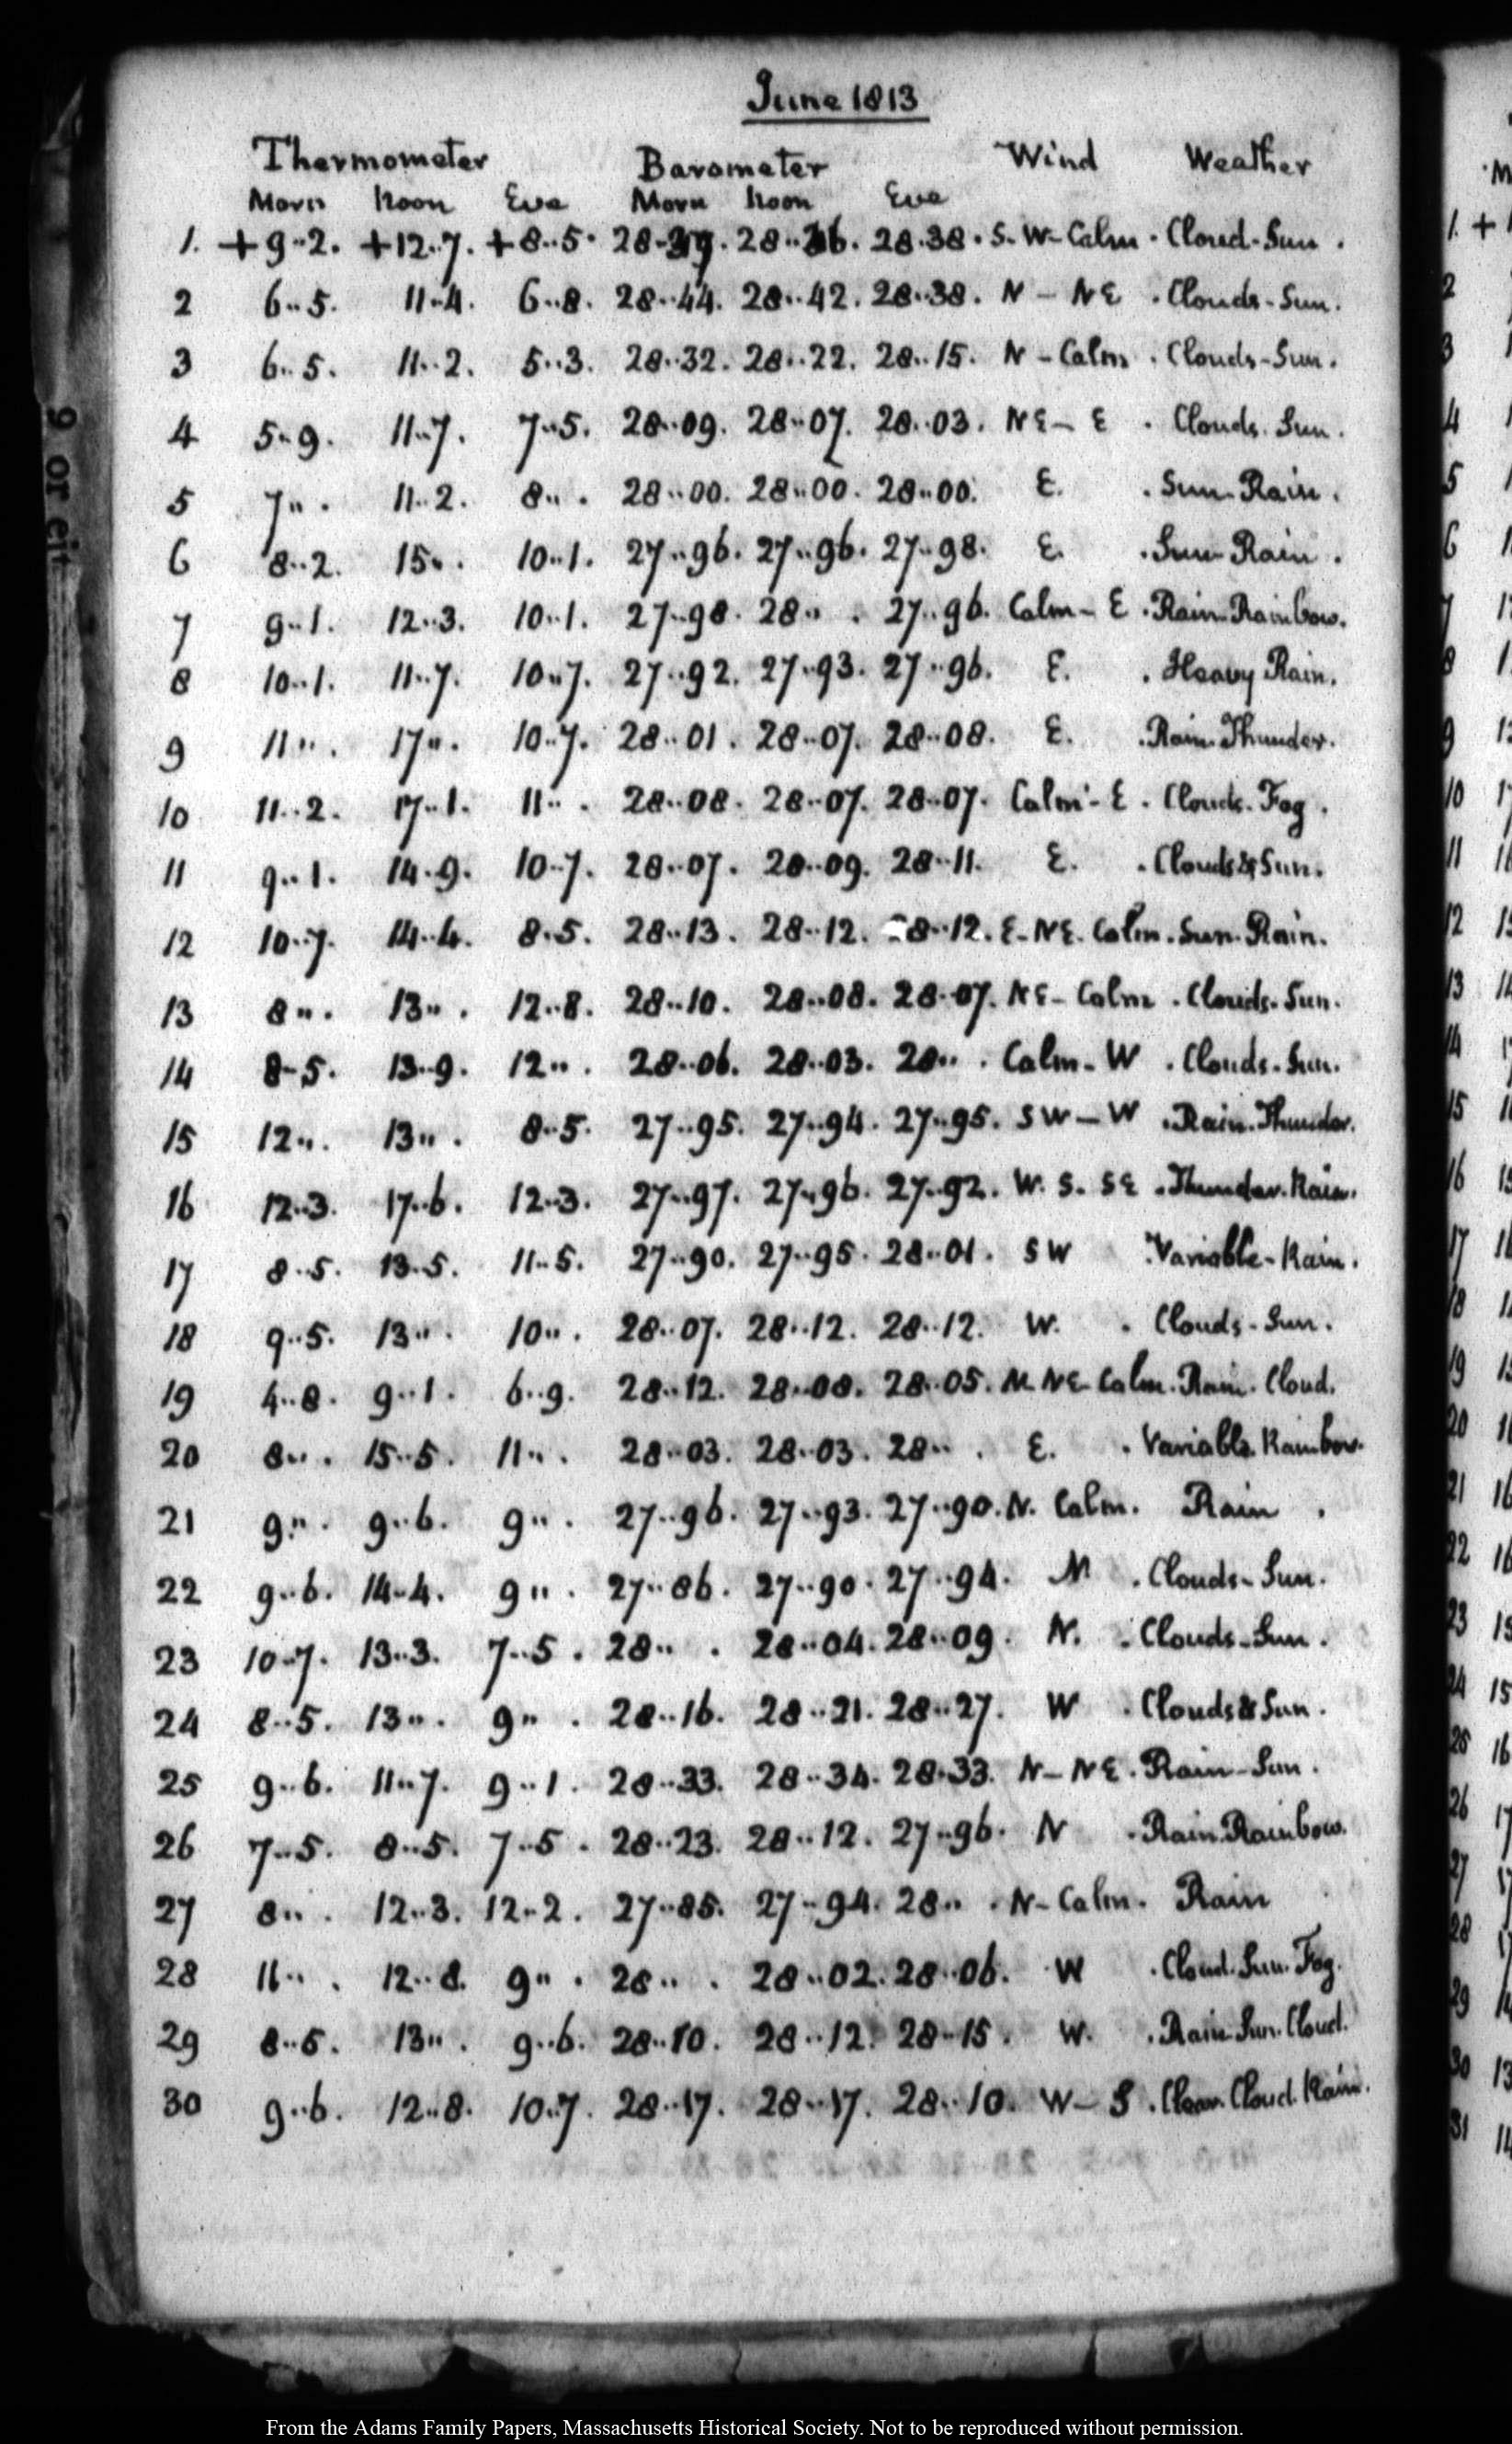 June 1813
Thermometer Barometer Wind Weather
Morn Noon Eve Morn Noon Eve
1. +9..2. +12..7. +8..5. 28..39. 28..36. 28.38. S.W-Calm. Cloud-Sun.
2 6..5. 11..4. 6..8. 28..44. 28..42. 28..38. N - NE. Clouds-Sun.
3 6..5. 11..2. 5..3. 28..32. 28..22. 28..15. N-Calm. Clouds-Sun.
4 5..9. 11..7. 7..5. 28..09. 28..07. 28..03. NE- E. Clouds. Sun.
5 7.. . 11..2. 8.. . 28..00. 28..00. 28..00. E. Sun-Rain.
6 8..2. 15.. . 10..1. 27..96. 27..96. 27..98. E. Sun-Rain.
7 9..1. 12..3. 10..1. 27..98. 28.. . 27..96. Calm-E. Rain-Rainbow.
8 10..1. 11..7. 10..7. 27..92. 27..93. 27..96. E. Heavy Rain.
9 11.. . 17.. . 10..7. 28..01. 28..07. 28..08. E. Rain-Thunder.
10 11..2. 17..1. 11.. . 28..08. 28..07. 28..07. Calm-E. Clouds. Fog.
11 9..1. 14..9. 10..7. 28..07. 28..09. 28..11. E. Clouds & Sun.
12 10..7. 14..4. 8..5. 28..13. 28..12. 28..12. E-NE. Calm. Sun. Rain.
13 8.. . 13.. . 12..8. 28..10. 28..08. 28..07. NE-Calm. Clouds. Sun.
14 8-5. 13..9. 12.. . 28..06. 28..03. 28.. . Calm-W. Clouds-Sun.
15 12.. . 13.. . 8..5. 27..95. 27..94. 27..95. SW-W. Rain-Thunder.
16 12..3. 17..6. 12..3. 27..97. 27..96. 27..92. W. S. SE. Thunder. Rain.
17 8..5. 13..5. 11..5. 27..90. 27..95. 28..01. SW Variable-Rain.
18 9..5. 13.. . 10.. . 28..07. 28..12. 28..12. W. Clouds-Sun.
19 4..8. 9..1. 6..9. 28..12. 28..08. 28..05. N NE Calm. Rain. Cloud.
20 8.. . 15..5. 11.. . 28..03. 28..03. 28.. . E. Variable. Rainbow.
21 9.. . 9..6. 9.. . 27..96. 27..93. 27..90. N. Calm. Rain.
22 9..6. 14..4. 9.. . 27..86. 27..90. 27..94. N. Clouds-Sun.
23 10..7. 13..3. 7..5. 28.. . 28..04. 28..09. N. Clouds-Sun.
24 8..5. 13.. . 9.. . 28..16. 28..21. 28..27. W. Clouds & Sun.
25 9..6. 11..7. 9..1. 28..33. 28..34. 28.33. N-NE. Rain-Sun.
26 7..5. 8..5. 7..5. 28..23. 28..12. 27..96. N. Rain. Rainbow.
27 8.. . 12..3. 12..2. 27..85. 27..94. 28.. . N-Calm. Rain
28 11.. . 12..8. 9.. . 28.. . 28..02. 28..06. W. Cloud. Sun. Fog.
29 8..5. 13.. . 9..6. 28..10. 28..12. 28..15. W. Rain-Sun. Cloud.
30 9..6. 12..8. 10..7. 28..17. 28..17. 28..10. W-S. Clear. Cloud. Rain.
From the Adams Family Papers, Massachusetts Historical Society. Not to be reproduced without permission.